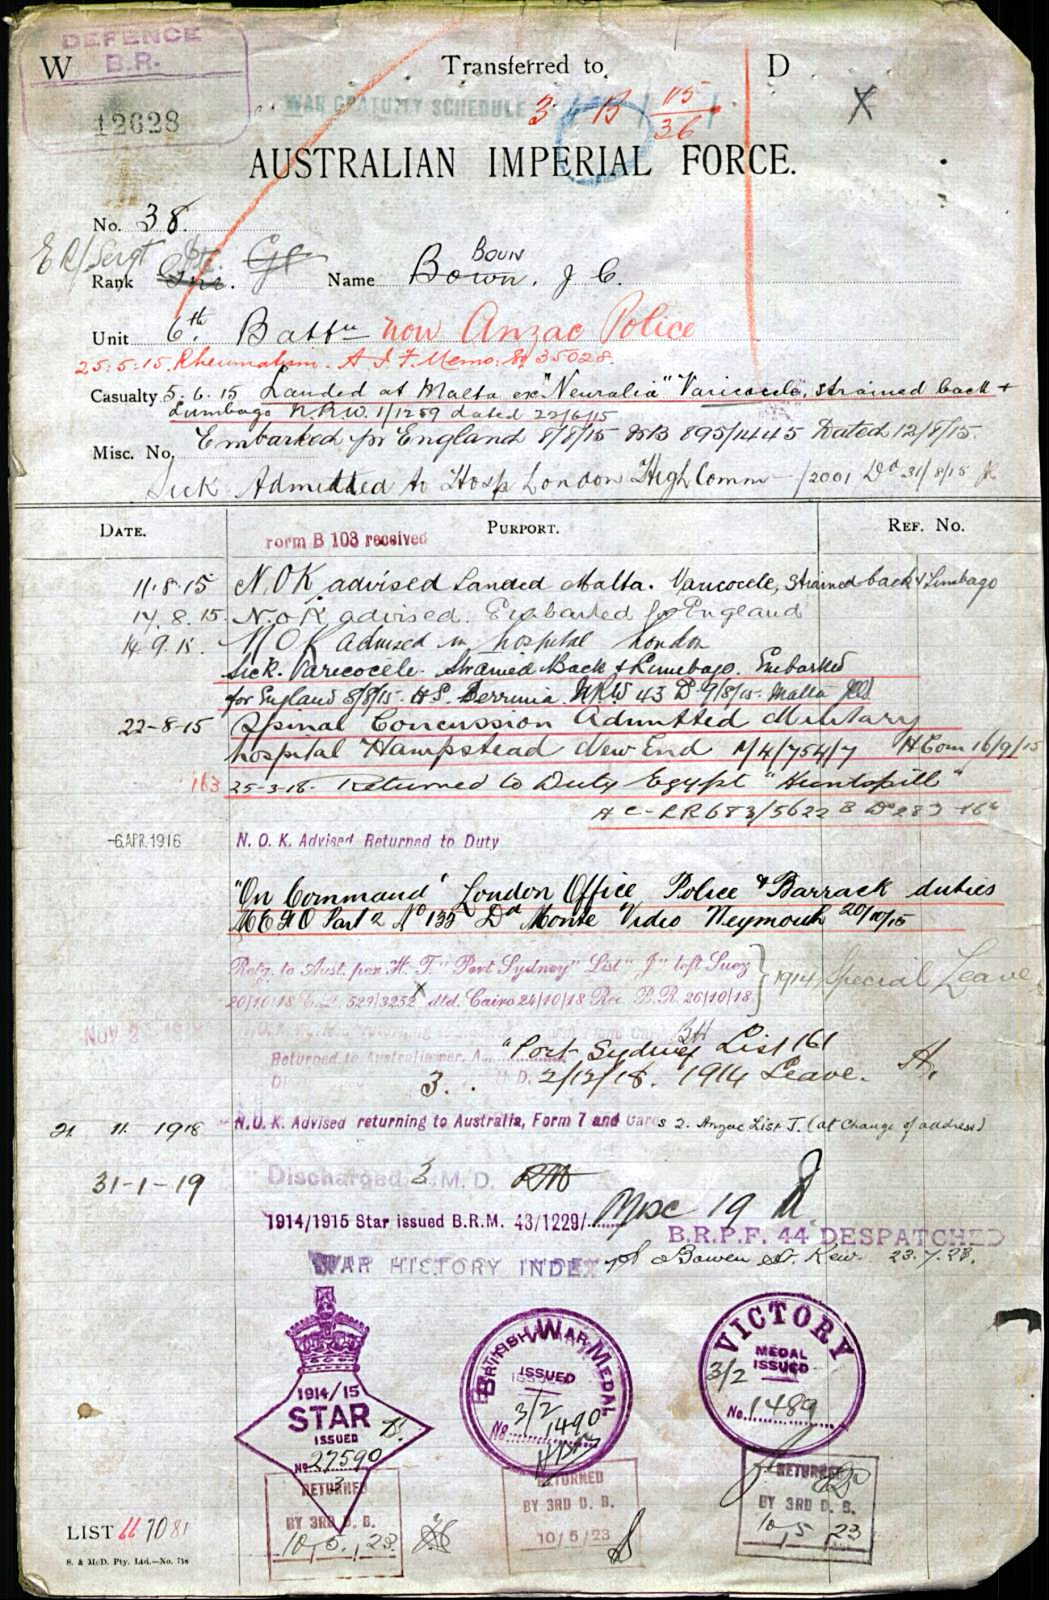 DEFENCE
B.R.
W Transferred to D
WAR GRATUITY SCHEDULE
3 B 15/36 X
12628
AUSTRALIAN IMPERIAL FORCE.
No. 38
ER/Sergt
Rank Name Bown, J C.
BOUN
Unit 6th Battn now Anzac Police
25.5.15. Rheumatism. A I F Memo: 35028.
Casualty 5.6.15 Landed at Malta ex "Neuralia" Varicocele, strained back +
Lumbago N.R.W. 1/1259 dated 22/6/15
Embarked for England 8/8/15 895/1445 Dated 12/8/15.
Misc. No.
Sick Admitted to Hosp London High Comm 2001 Dd 31/8/15
DATE. PURPORT. REF. No.
Form B 103 received
11.8.15 N.O.K advised Landed Malta. Varicocele, strained back & Lumbago
17.8.15. N.O.K advised. Embarked for England
14.9.15. N O K advised in hospital London
Sick. Varicocele. Strained Back & Lumbago. Embarked
for England 8/8/15. H.S. NRW 43 D 9/8/15. Malta
22-8-15 Spinal Concussion Admitted Military
hospital Hampstead New End M/4/754/7 H Com 16/9/15
163 25-3-16. Returned to Duty Egypt "Huntspill"
-6 APR. 1916 N. O. K. Advised Returned to Duty
"On Command" London Office Police & Barrack duties
Part 2 No 133 Dd Monte Video Weymouth 20/10/15
Retg. to Aust. per H. T. "Port Sydney" List "J" left Suez
20/10/18 529/3252 dtd. Cairo 24/10/18 Rec. B.R. 26/10/18.
1914 Special Leave
Returned to Australia per
"Port Sydney List 161
3. 2/12/18. 1914 Leave.
21 11 1918 N.O.K. Advised returning to Australia, Form 7 and Cards 2. Anzac List J. (at Change of address)
31-1-19 Discharged 3 M.D.
1914/1915 Star issued B.R.M. 43/1229/ Misc 19
B.R.P.F. 44 DESPATCHED
WAR HISTORY INDEX Bowen St. Kew. 23.7.23.
1914/15
STAR
ISSUED
No 27590
BRITISH WAR MEDAL
ISSUED
3/2
No. 1490
VICTORY
MEDAL
ISSUED
3/2
No. 1489
RETURNED
3
BY 3RD D. B.
10.5.23.
RETURNED
BY 3RD D. B.
10/5/23
RETURNED
BY 3RD D. B.
10.5.23
LIST
S. & McD. Pty. Ltd.—No. 718